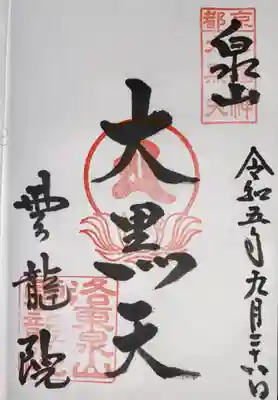 泉山
令和五年九月二十六日
大黒天
雲龍院
京
都
洛東泉山
龍